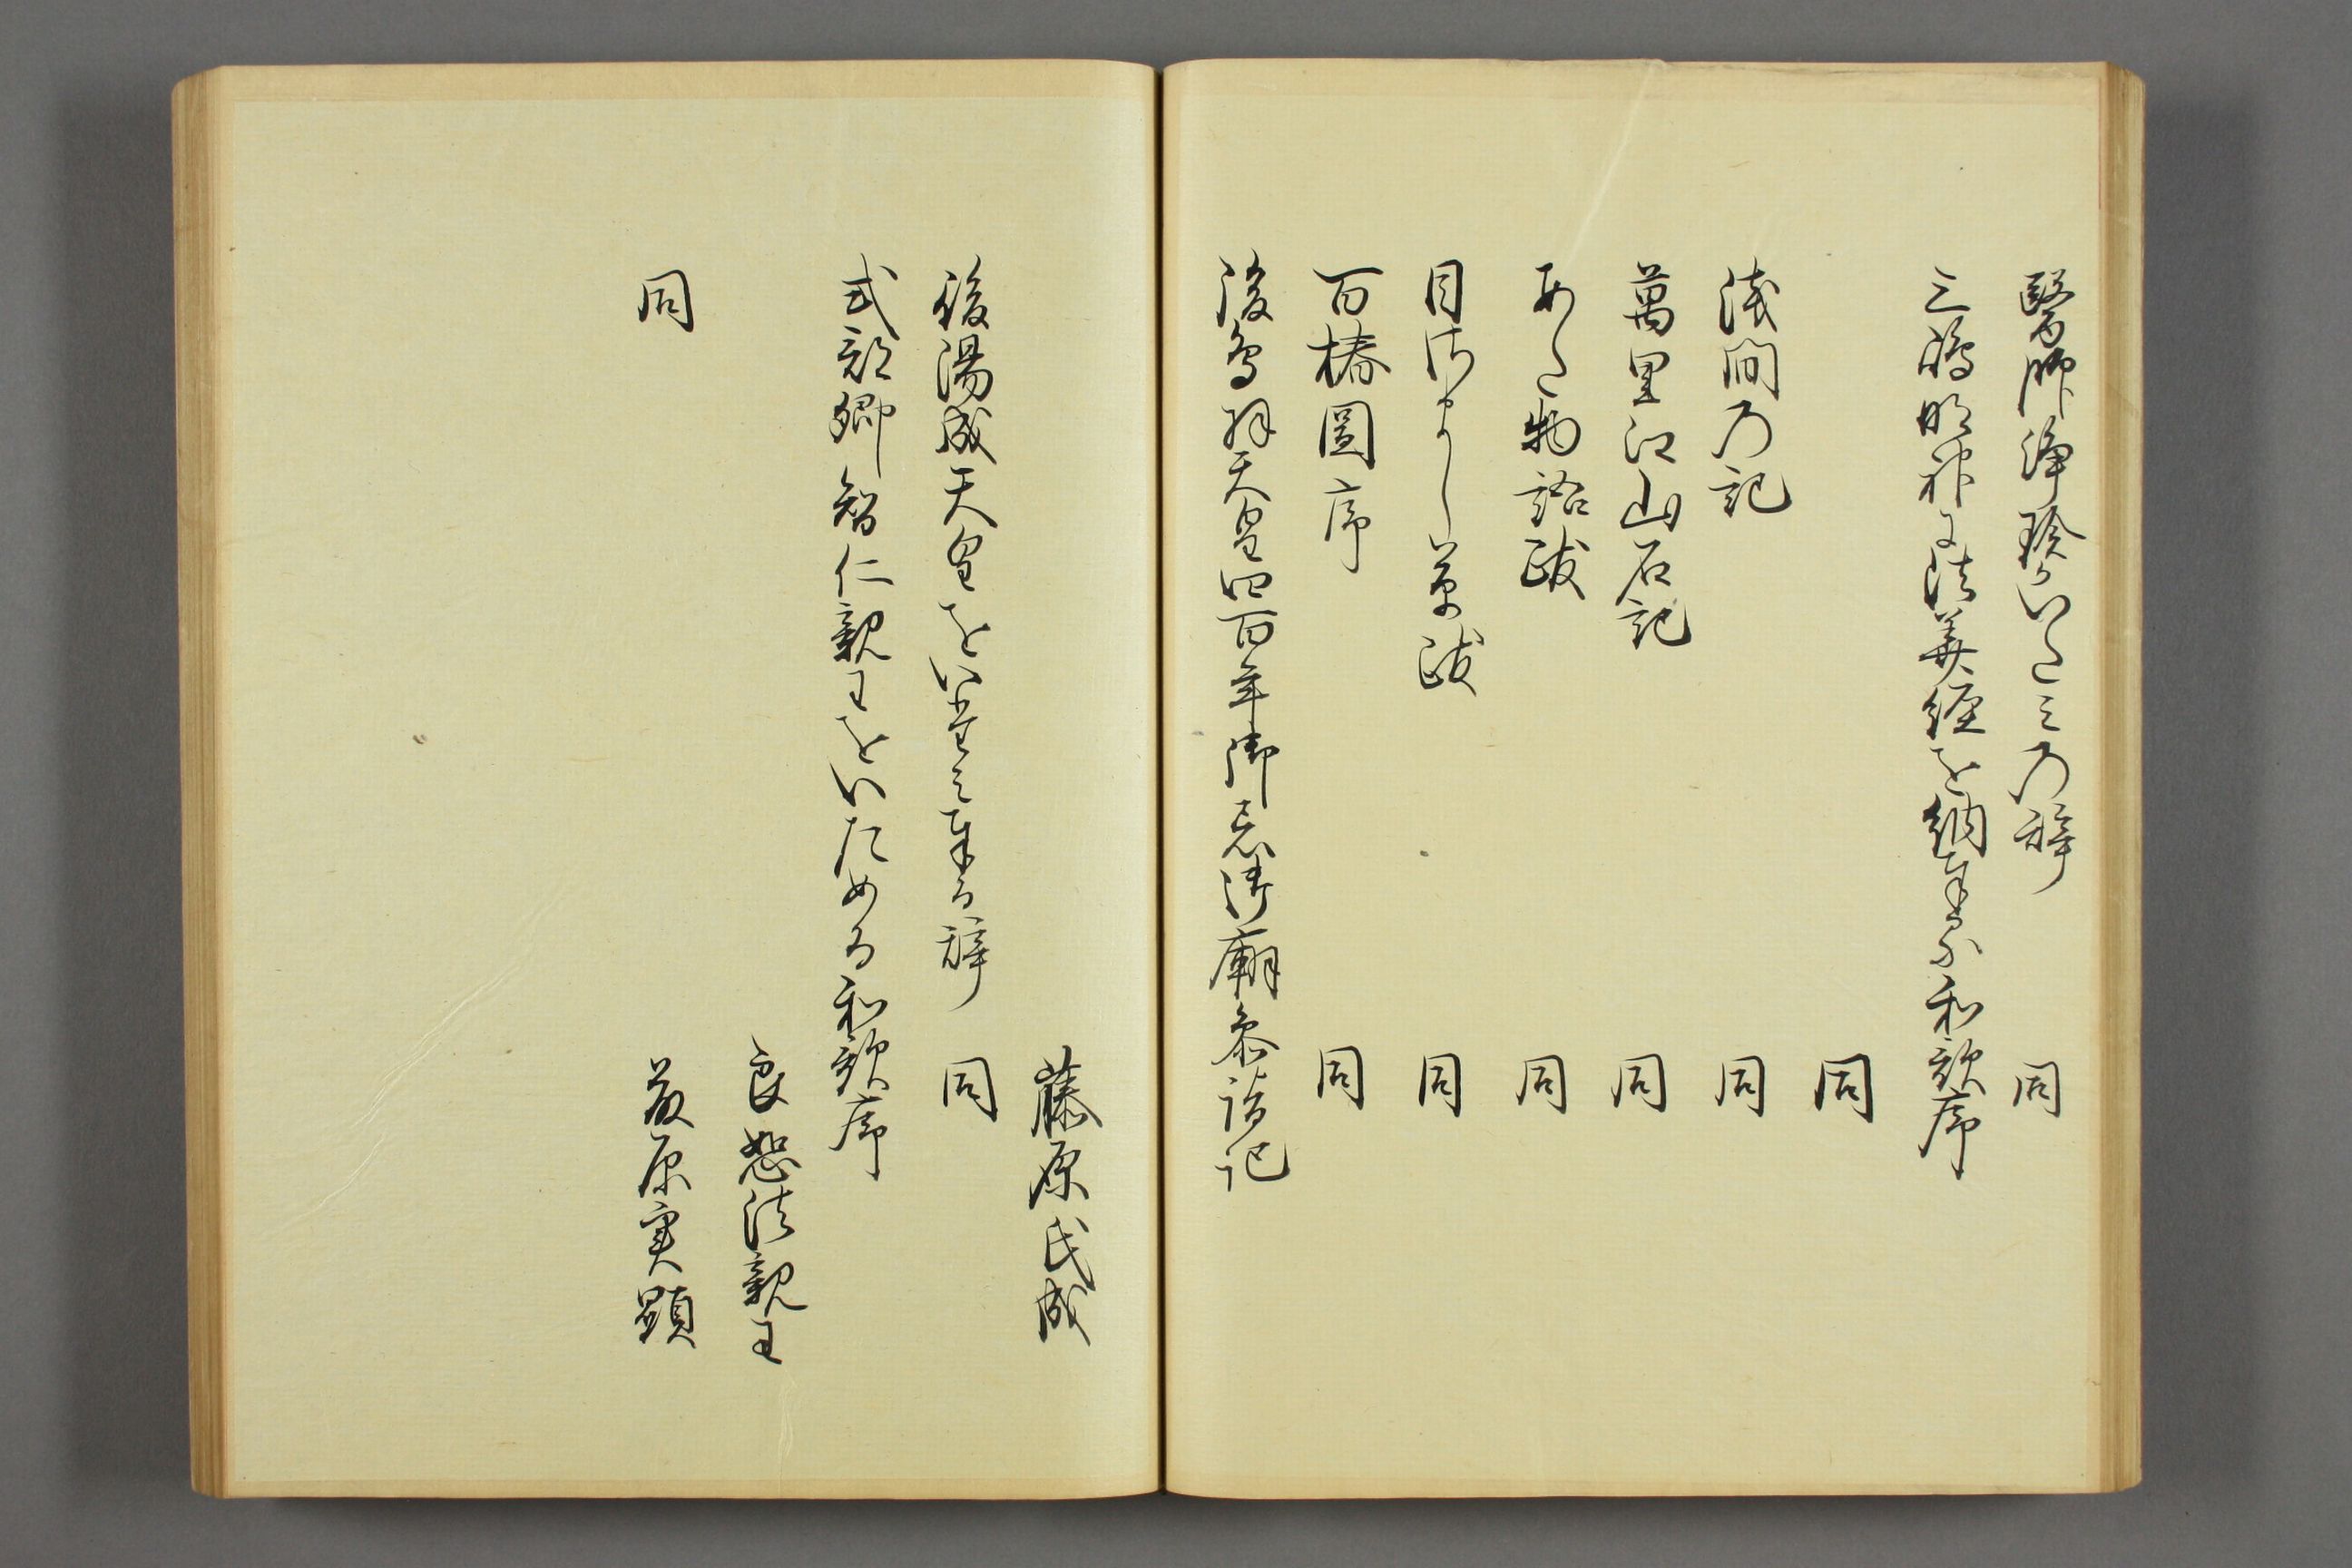 醫師浄珍かいたミの辞　同
三嶋明神に法華経を納奉る和歌序
同
浅間乃記　同
萬里江山石記　同
あた物語跋　同
目さまし草跋　同
百椿圖序　同
後鳥羽天皇四百年御忌御廟参詣記
藤原氏成
後陽成天皇をいたミ奉る辞　同
式部卿智仁親王をいためる和歌序
良恕法親王
同　藤原実顕